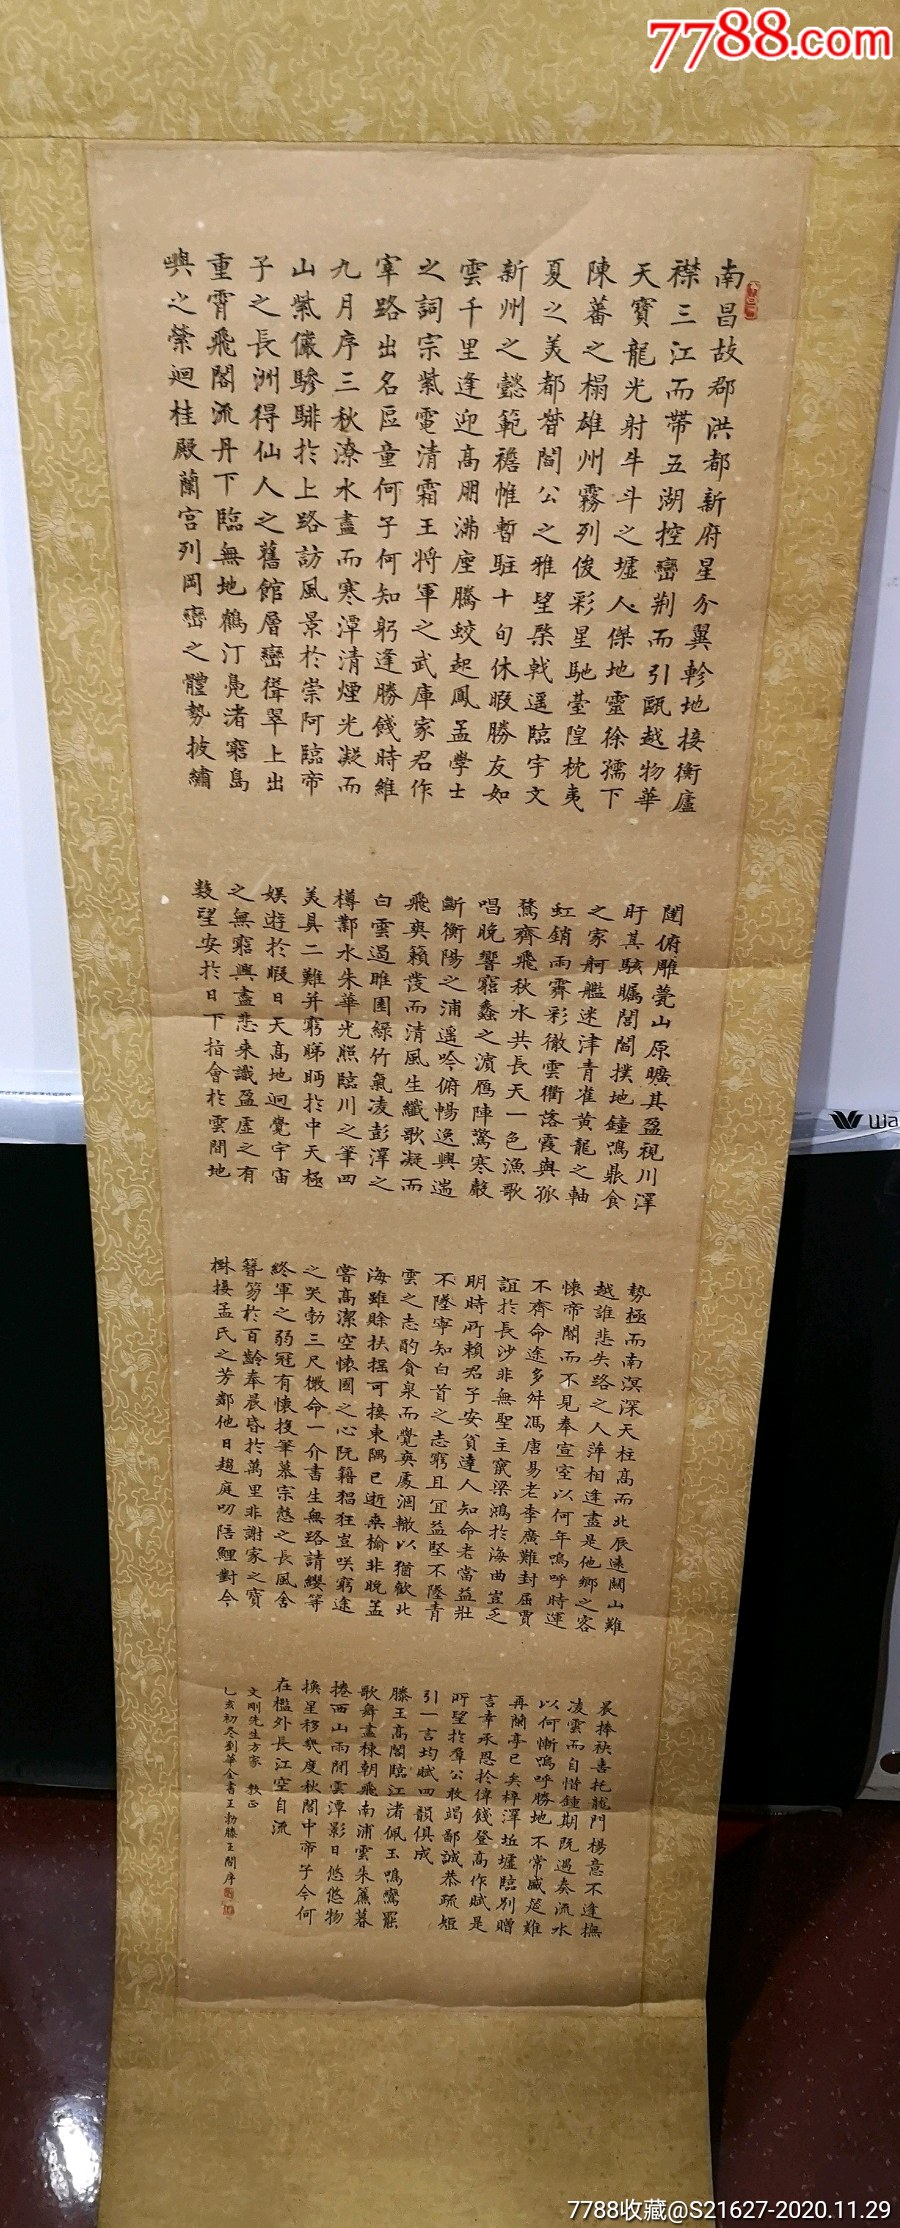 7788.com
南昌故郡洪都新府星分翼軫地接衡廬
襟三江而帶五湖控巒荆而引甌越物華
天寶龍光射牛斗之墟人傑地靈徐孺下
陳蕃之榻雄州霧列俊彩星馳臺隍枕夷
夏之美都督閻公之雅望棨戟遥臨宇文
新州之懿範襜帷暫駐十旬休暇勝友如
雲千里逢迎高朋滿座騰蛟起鳳孟學士
之詞宗紫電清霜王將軍之武庫家君作
宰路出名區童何子何知躬逢勝餞時維
九月序三秋潦水盡而寒潭清煙光凝而
山紫儼驂騑於上路訪風景於崇阿臨帝
子之長洲得仙人之舊館層巒聳翠上出
重霄飛閣流丹下臨無地鶴汀凫渚窮島
嶼之縈迴桂殿蘭宫列岡巒之體勢披繡
闥俯雕甍山原曠其盈視川澤
盱其駭矚閭閻撲地鐘鳴鼎食
之家舸艦迷津青雀黄龍之軸
虹銷雨霽彩徹雲衢落霞與孤
鶩齊飛秋水共長天一色漁歌
唱晚響窮蠡之濱雁陣驚寒聲
斷衡陽之浦遥吟俯暢逸興遄
飛爽籟發而清風生纖歌凝而
白雲遏睢園綠竹氣凌彭澤之
樽鄴水朱華光照臨川之筆四
美具二難并窮睇眄於中天極
娱遊於暇日天高地迥覺宇宙
之無窮興盡悲来識盈虚之有
數望安於日下指會於雲間地
勢極而南溟深天柱高而北辰遠關山難
越誰悲失路之人萍相逢盡是他鄉之客
懷帝閽而不見奉宣室以何年嗚呼時運
不齊命途多舛馮唐易老李廣難封屈賈
誼於長沙非無聖主竄梁鴻於海曲豈乏
明時所賴君子安貧達人知命老當益壯
不墜寧知白首之志窮且宜益堅不墜青
雲之志酌貪泉而覺爽處涸轍以猶歡北
海雖賒扶摇可接東隅已逝桑榆非晚孟
嘗高潔空懷國之心阮籍猖狂豈咲窮途
之哭勃三尺微命一介書生無路請纓等
終軍之弱冠有懷投筆慕宗慤之長風舍
簪笏於百齡奉晨昏於萬里非謝家之寶
樹接孟氏之芳鄰他日趨庭叨陪鯉對今
晨捧袂喜托龍門楊意不逢撫
凌雲而自惜鍾期既遇奏流水
以何慚嗚呼勝地不常盛筵難
再蘭亭已矣梓澤坵墟臨别贈
言幸承恩於偉餞登高作賦是
所望於羣公敢竭鄙誠恭疏短
引一言均賦四韻俱成
滕王高閣臨江渚佩玉鳴鸞罷
歌舞畫棟朝飛南浦雲朱簾暮
捲西山雨閒雲潭影日悠悠物
換星移幾度秋閣中帝子今何
在檻外長江空自流
文剛先生方家 教正
乙亥初冬劉華金書王勃滕王閣序
Wa
7788收藏@S21627-2020.11.29